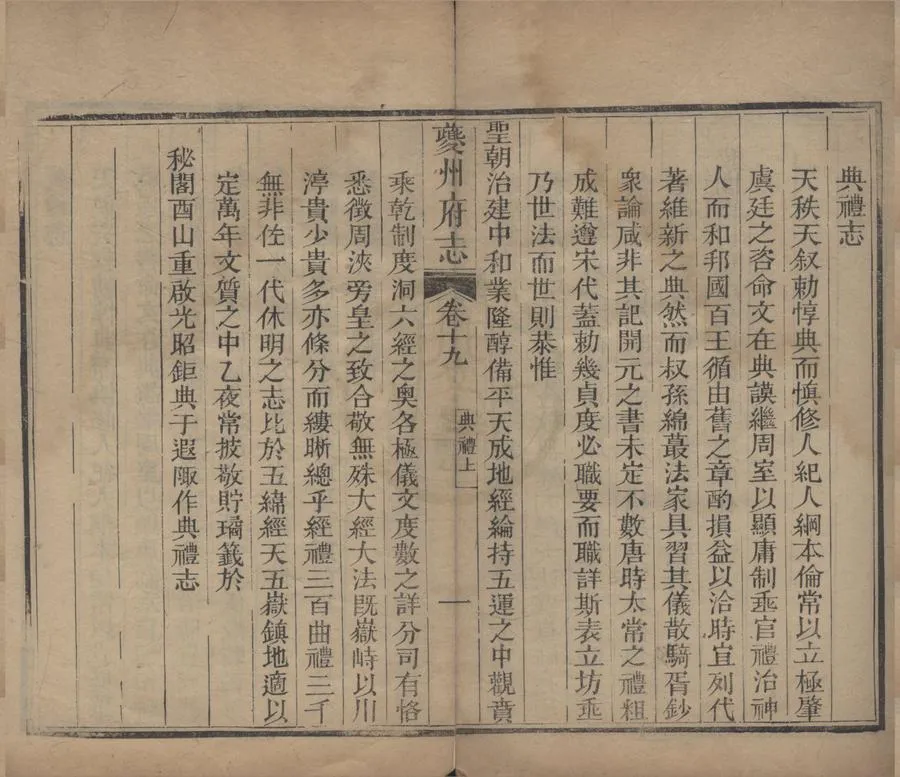 典禮志
天秩天叙勅惇典而慎修人紀人綱本倫常以立極肇
虞廷之咨命文在典謨繼周室以顯庸制垂官禮治神
人而和邦國百王循由舊之章酌損益以洽時宜列代
著維新之典然而叔孫綿蕞法家具習其儀散騎胥鈔
衆論咸非其記開元之書未定不數唐時太常之禮粗
成難遵宋代蓋勅幾貞度必職要而職詳斯表立坊乖
乃世法而世則恭惟
聖朝治建中和業隆醇備平天成地經綸持五運之中觀賁
夔州府志
卷十九
典禮上
一
乘乾制度洞六經之奥各極儀文度數之詳分司有恪
悉徵周浹旁皇之致合敬無殊大經大法既嶽峙以川
渟貴少貴多亦條分而縷晰總乎經禮三百曲禮三千
無非佐一代休明之志比於五緯經天五嶽鎮地適以
定萬年文質之中乙夜常披敬貯瑶籤於
秘閣酉山重啟光昭鉅典于遐陬作典禮志